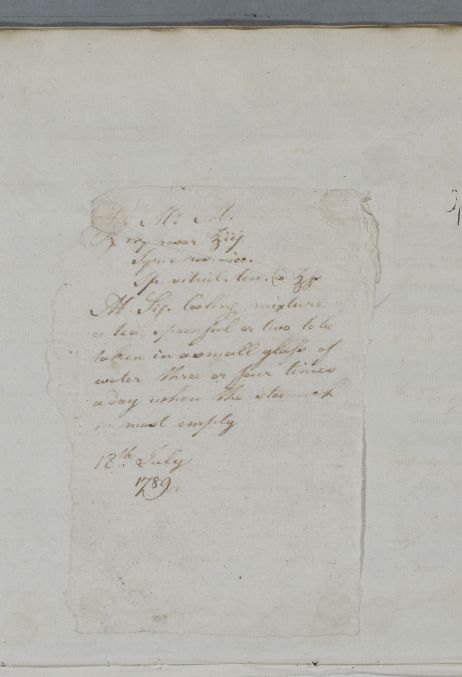 ℞ ros rosar ℥iij
Sp. vitriol. ten. a ʒss
M. Sig. Cooling mixture
a tea spoonful or two to be
taken in a small glass of
water three or four times
a day when the stomach
is most empty
18th July
1789